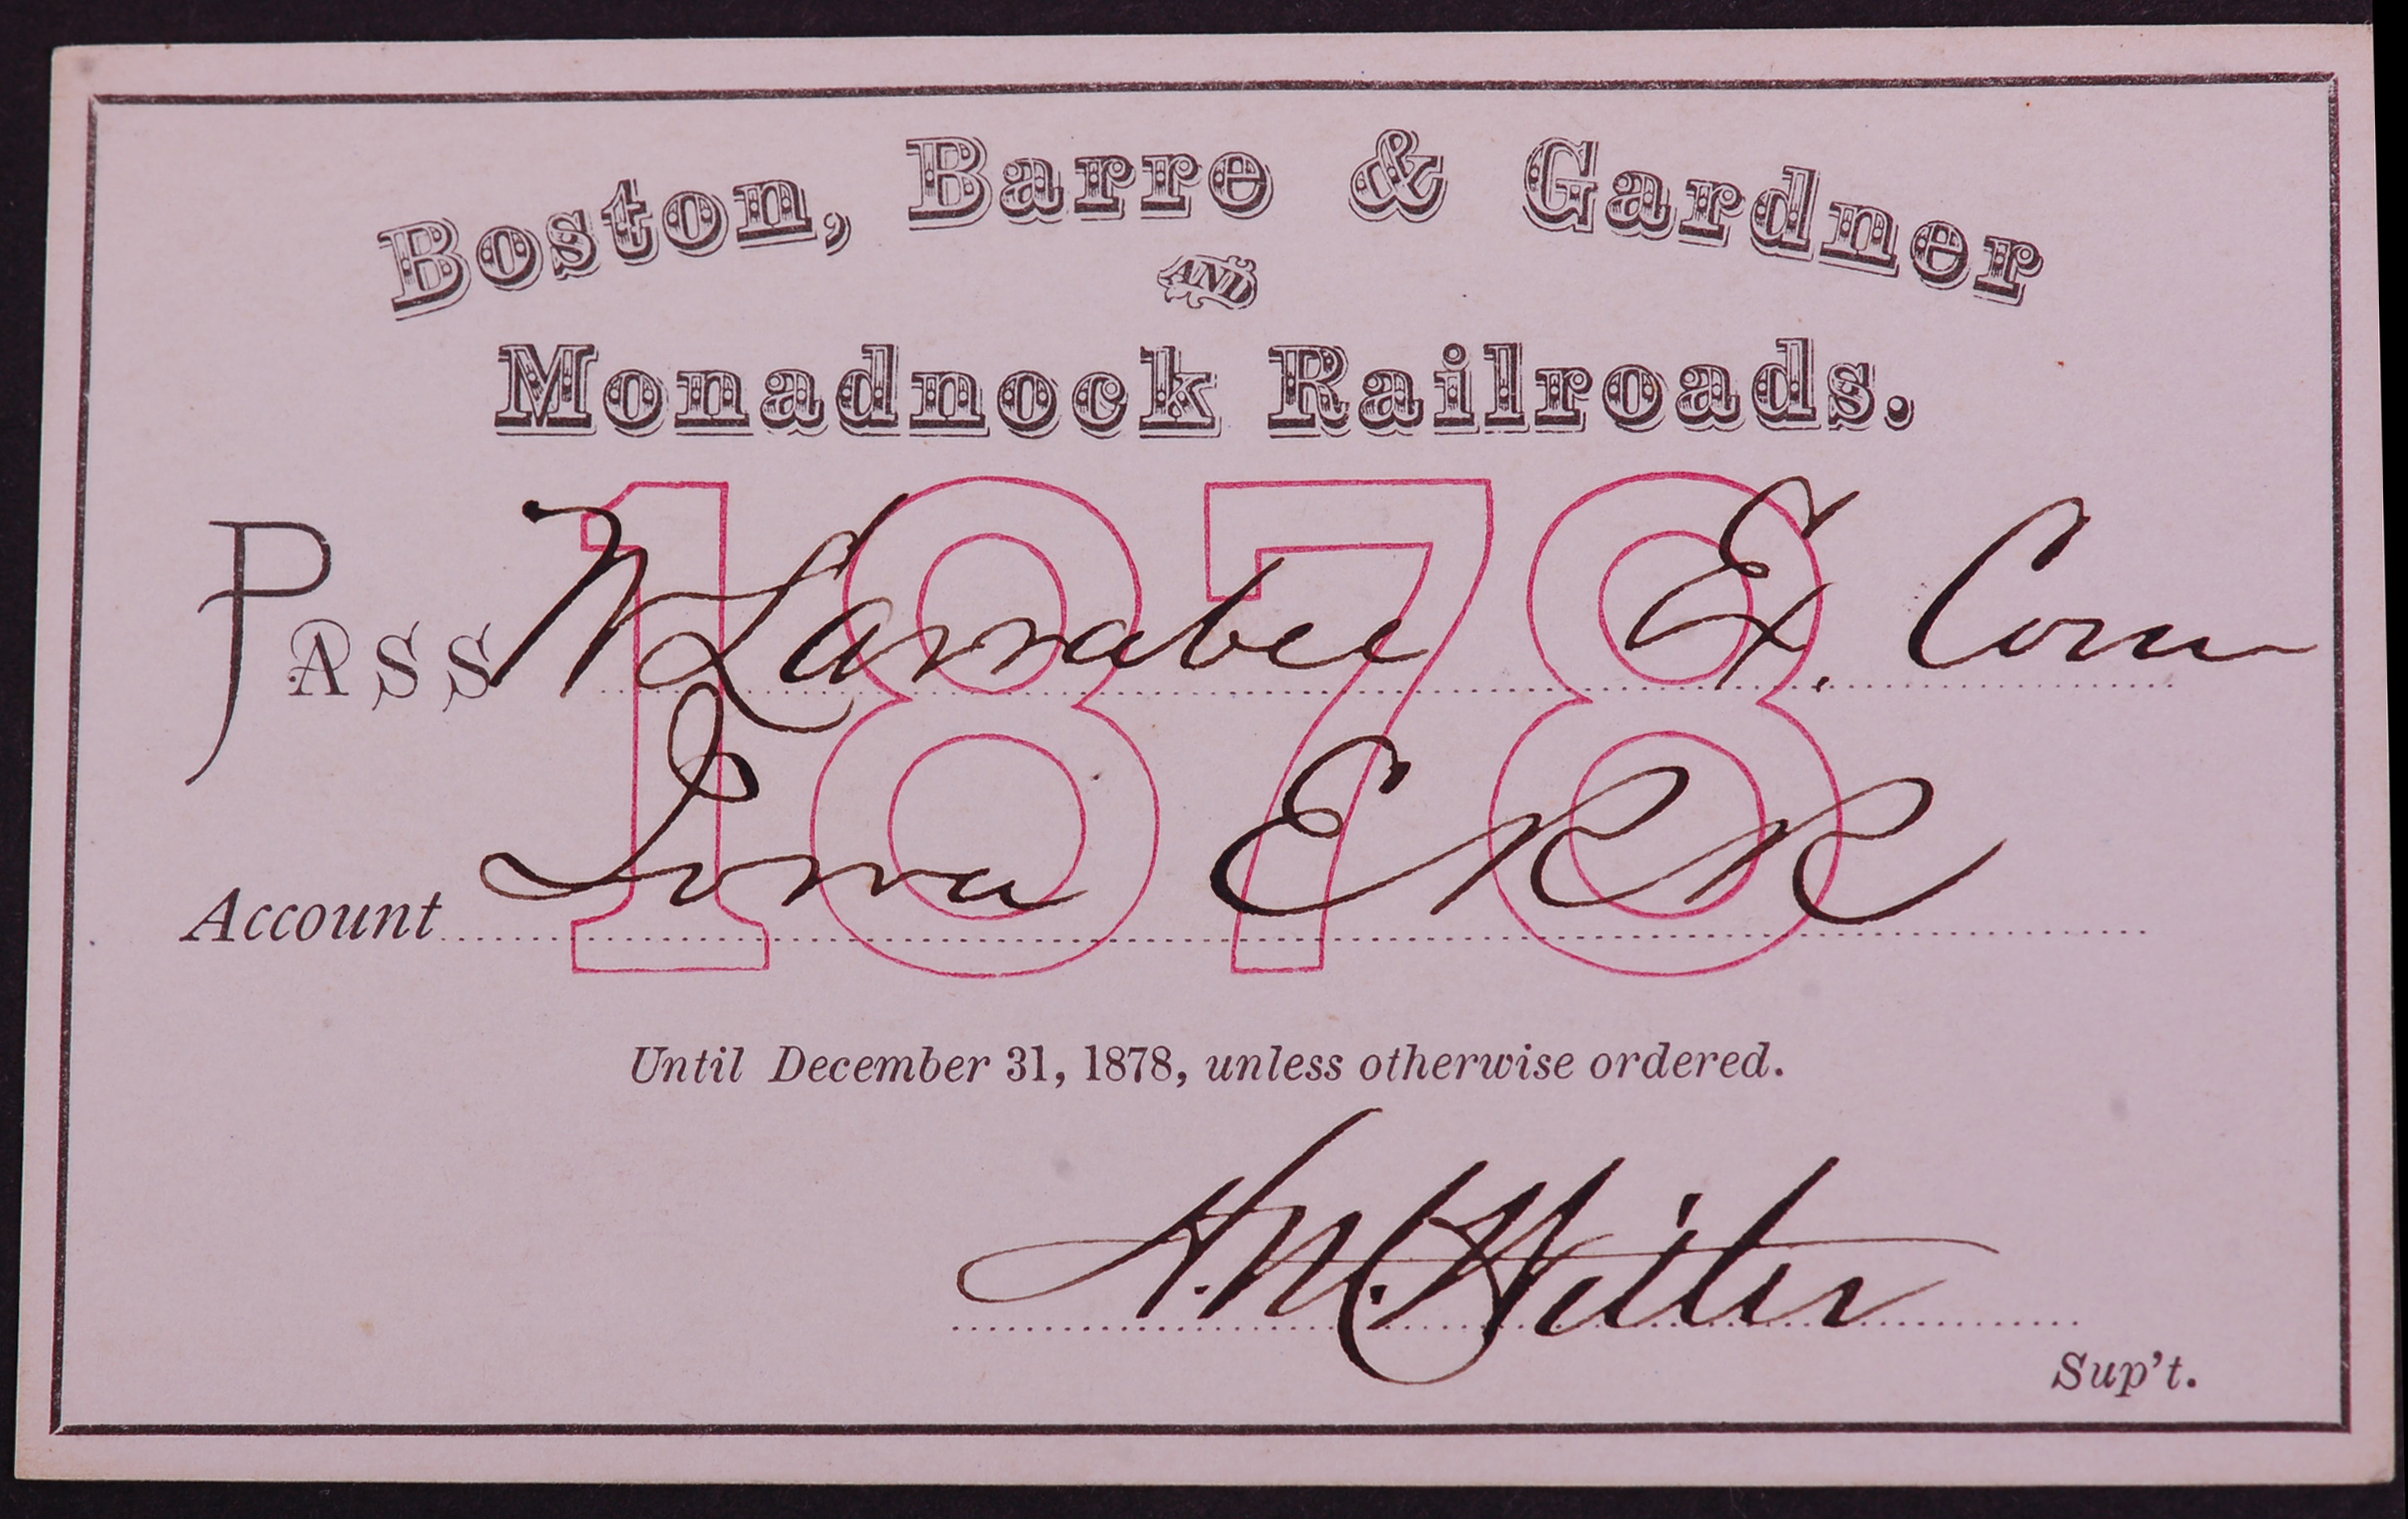 Boston, Barre & Gardner
AND
Monadnock Railroads.
1878
Pass W Larrabee Ex. Com
Account Iowa E RR
Until December 31, 1878, unless otherwise ordered.
H. M. Witter
Sup't.